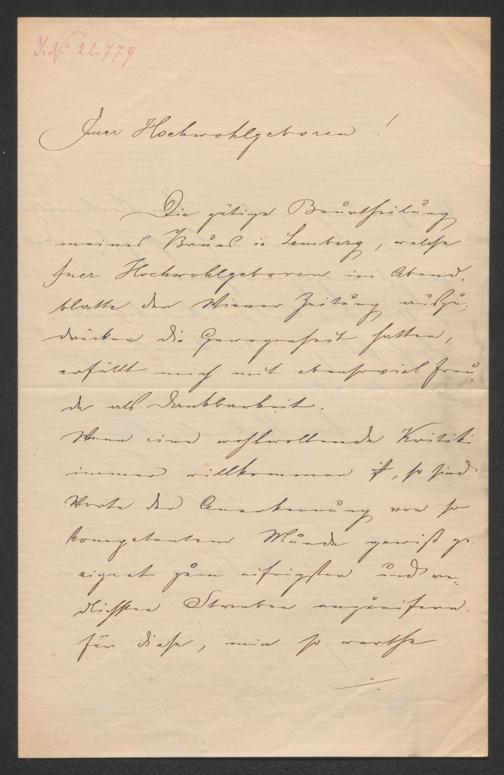 J. No 22.779
Euer Hochwohlgeboren!
Die gütige Beurtheilung
meines Baues in Lemberg, welche
Euer Hochwohlgeboren im Abend-
blatte der Wiener Zeitung auszu-
drücken die Gewogenheit hatten,
erfüllt mich mit ebensoviel Freu-
de als Dankbarkeit.
Wenn eine wohlwollende Kritik
immer willkommen ist, so sind
Worte der Anerkennung von so
kompetentem Munde gewiß ge-
eignet zum eifrigsten und red-
lichsten Streben anzueifern.
Für diese, mir so werthe